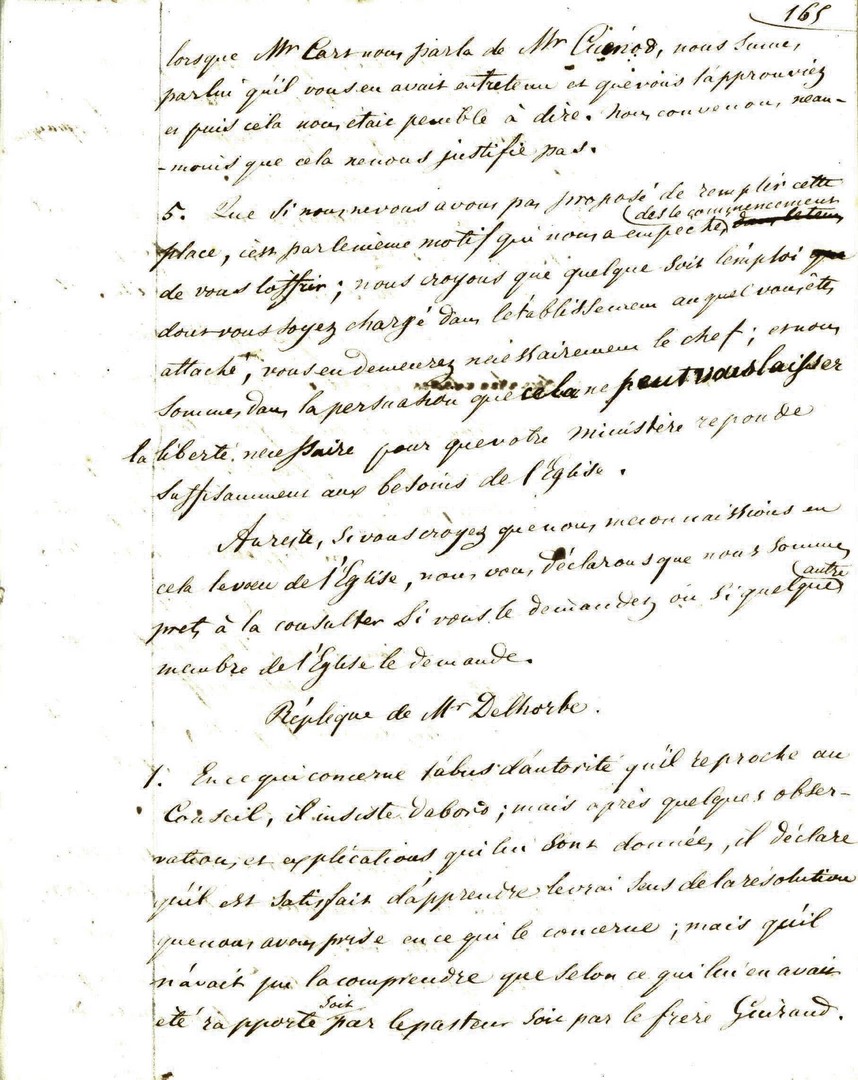 165
lorsque Mr Carr nous parla de Mr Cuénod, nous sumes
par lui qu'il vous en avait entretenu et que vous l'approuviez
et puis cela nous était penible à dire. nous convenons, néan-
-moins que cela ne nous justifie pas.
5. Que si nous ne vous avons pas proposé de remplir cette
dès le commencement
place, c'est par le même motif qui nous a empeché dans le tems
de vous l'offrir ; nous croyons que quelque soit l'emploi que
dont vous soyez chargé dans l'établissement auquel vous êtes
attaché, vous en demeurez nécessairement le chef ; et nous
sommes dans la persuasion que cela ne peut vous laisser
la liberté nécessaire pour que votre ministère reponde
suffisamment aux besoins de l'Eglise.
Au reste, si vous croyez que nous meconnaissions en
cela le voeu de l'Eglise, nous vous déclarons que nous sommes
autre
prets à la consulter si vous le demandez ou si quelque
membre de l'Eglise le demande.
Réplique de Mr Delhorbe.
1. En ce qui concerne l'abus d'autorité qu'il reproche au
Conseil, il insiste d'abord ; mais après quelques obser-
vations et explications qui lui sont données, il déclare
qu'il est satisfait d'apprendre le vrai sens de la résolution
que nous avons prise en ce qui le concerne ; mais qu'il
n'avait pu la comprendre que selon ce qui lui en avait
soit
été rapporté par le pasteur soit par le frère Guiraud.